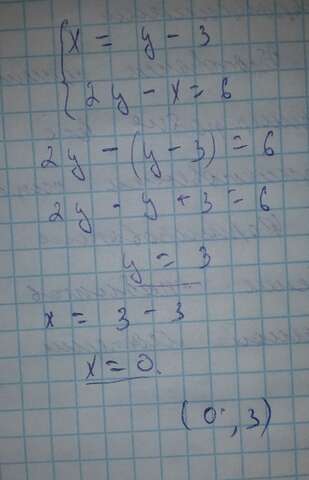 { x = y - 3
2y - x = 6
2y - (y - 3) = 6
2y - y + 3 = 6
y = 3
x = 3 - 3
x = 0.
(0, 3)